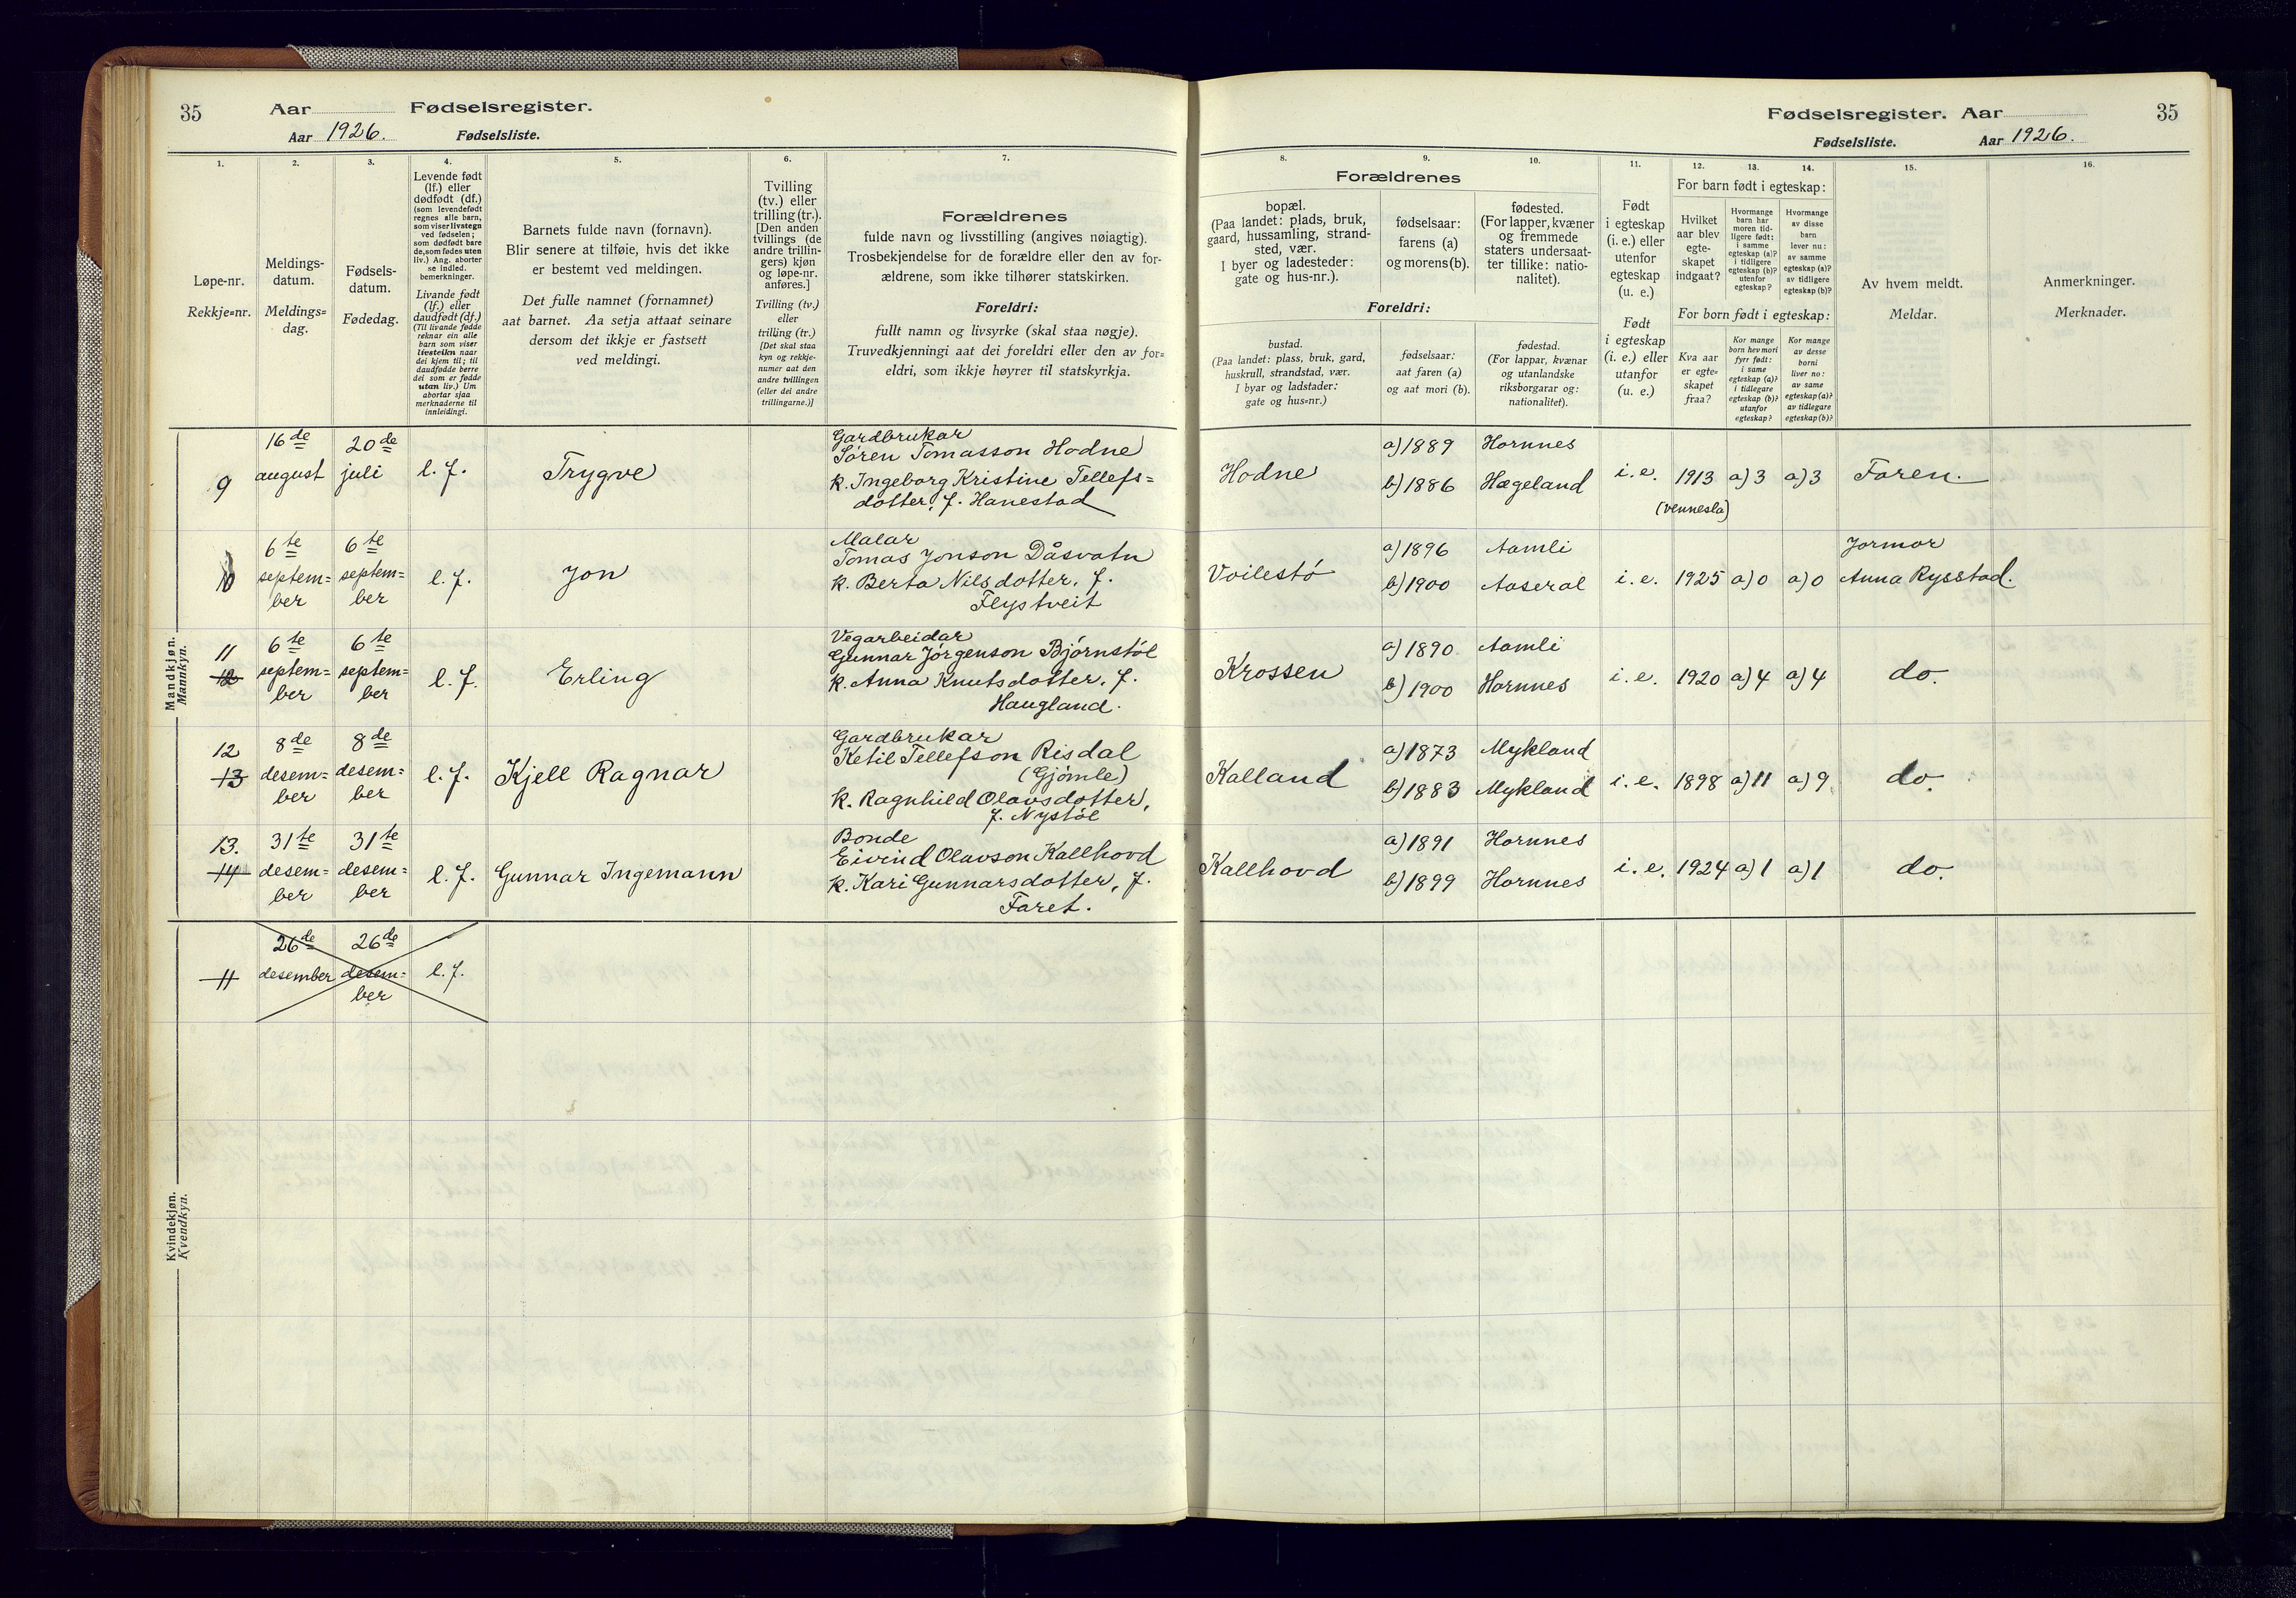 35 Aar Fødselsregister.
Aar 1926. Fødselsliste.
Fødselsregister. Aar 35
Fødselsliste. Aar 1926.
1.
Løpe-nr.
Rekkje=nr.
2.
Meldings-
datum.
Meldings=
dag.
3.
Fødsels-
datum.
Fødedag.
4.
Levende født
(lf.) eller
dødfødt (df.)
(som levendefødt
regnes alle barn,
som viser livstegn
ved fødselen;
som dødfødt bare
de, som fødes uten
liv.) Ang. aborter
se indled.
bemerkninger.
Livande født
(lf.) eller
daudfødt (df.)
(Til livande fødde
reknar ein alle
barn som viser
livsteikn naar
dei kjem til; til
daudfødde berre
dei som er fødde
utan liv.) Um
abortar sjaa
merknaderne til
innleidingi.
5.
Barnets fulde navn (fornavn).
Blir senere at tilføie, hvis det ikke
er bestemt ved meldingen.
Det fulle namnet (fornamnet)
aat barnet. Aa setja attaat seinare
dersom det ikkje er fastsett
ved meldingi.
6.
Tvilling
(tv.) eller
trilling (tr.).
[Den anden
tvillings (de
andre trillin-
gers) kjøn
og løpe-nr.
anføres.]
Tvilling (tv.)
eller
trilling (tr.)
[Det skal staa
kyn og rekkje-
numer aat den
andre tvillingen
(eller dei andre
trillingarne.)]
7.
Forældrenes
fulde navn og livsstilling (angives nøiagtig).
Trosbekjendelse for de forældre eller den av for-
ældrene, som ikke tilhører statskirken.
Foreldri:
fullt namn og livsyrke (skal staa nøgje).
Truvedkjenningi aat dei foreldri eller den av for=
eldri, som ikkje høyrer til statskyrkja.
8.
Forældrenes
bopæl.
(Paa landet: plads, bruk,
gaard, hussamling, strand-
sted, vær.
I byer og ladesteder:
gate og hus-nr.).
Foreldri:
bustad.
(Paa landet: plass, bruk, gard,
huskrull, strandstad, vær.
I byar og ladstader:
gate og hus=nr.)
9.
fødselsaar:
farens (a)
og morens (b).
fødselsaar:
aat faren (a)
og aat mori (b).
10.
fødested.
(For lapper, kvæner
og fremmede
staters undersaat-
ter tillike: natio-
nalitet).
fødestad.
(For lappar, kvænar
og utanlandske
riksborgarar og:
nationalitet).
11.
Født
i egteskap
(i. e.) eller
utenfor
egteskap
(u. e.)
Født
i egteskap
(i. e.) eller
utanfor
(u. e.)
12. 13. 14.
For barn født i egteskap:
Hvilket
aar blev
egte-
skapet
indgaat?
Hvormange
barn har
moren tid-
ligere født:
i samme
egteskap (a)?
i tidligere
egteskap (b)?
utenfor
egteskap?
Hvormange
av disse
barn
lever nu:
av samme
egteskap (a)?
av tidligere
egteskap (b)?
For born født i egteskap:
Kva aar
er egte=
skapet
fraa?
Kor mange
born hev mori
fyrr født:
i same
egteskap (a)?
i tidlegare
egteskap (b)?
utanfor
egteskap?
Kor mange
av desse
borni
liver no:
av same
egteskap (a)?
av tidlegare
egteskap (b)?
15.
Av hvem meldt.
Meldar.
16.
Anmerkninger.
Merknader.
Mandkjøn.
Mannkyn.
9
16de
august
20de
juli
l. f.
Trygve
Gardbrukar
Søren Tomasson Hodne
k. Ingeborg Kristine Tellefs=
dotter, f. Hanestad
Hodne
a) 1889 Hornnes
b) 1886 Hægeland
i. e. 1913 a) 3 a) 3 Faren.
(Vennesla)
10
6te
septem=
ber
6te
septem=
ber
l. f.
Jon
Malar
Tomas Jonson Dåsvatn
k. Berta Nilsdotter, f.
Flystveit
Voilestø
a) 1896 Aamli
b) 1900 Aaseral
i. e. 1925 a) 0 a) 0
Jormor
Anna Rysstad.
11
12
6te
septem=
ber
6te
septem=
ber
l. f.
Erling
Vegarbeidar
Gunnar Jørgenson Bjørnstøl
k. Anna Knutsdotter, f.
Haugland.
Krossen
a) 1890 Aamli
b) 1900 Hornnes
i. e. 1920 a) 4 a) 4 do.
12
13
8de
desem=
ber
8de
desem=
ber
l. f.
Kjell Ragnar
Gardbrukar
Ketil Tellefson Risdal
(Gjømle)
k. Ragnhild Olavsdotter,
f. Nystøl
Kalland
a) 1873 Mykland
b) 1883 Mykland
i. e. 1898 a) 11 a) 9 do.
13.
14
31te
desem=
ber
31te
desem=
ber
l. f.
Gunnar Ingemann
Bonde
Eivind Olavson Kallhovd
k. Kari Gunnarsdotter, f.
Faret.
Kallhovd
a) 1891 Hornnes
b) 1899 Hornnes
i. e. 1924 a) 1 a) 1 do.
Kvindekjøn.
Kvendkyn.
11
26de
desember
26de
desem=
ber
l. f.